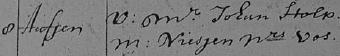 8 Aafjen V: Mr. Johan Stolp.
M: Niesjen Mrs Vos.